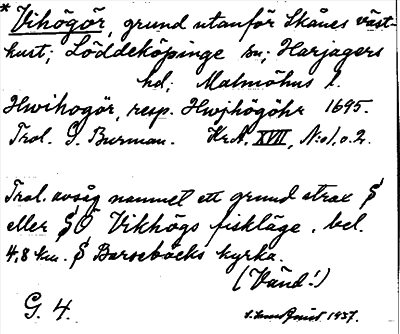 * Vihögör, grund utanför Skånes väst-
kust; Löddeköpinge sn; Harjagers
hd; Malmöhus l.
Hwihogör, resp. Hwjhögöhr 1695.
Trol. G. Burman. Kr.A. XVII, N:o 1, o. 2.
Trol. avsåg namnet ett grund strax S
eller SÖ Vikhögs fiskläge, bel.
4,8 km. S Barsebäcks kyrka.
(Vänd!)
G. 4. 1937.